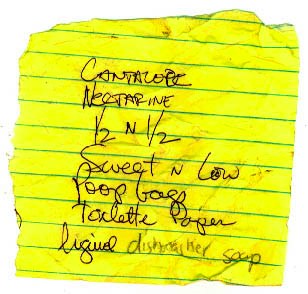 CANTALOPE
NECTARINE
1/2 N 1/2
Sweet N Low
Poop bags
Toilette Paper
liquid dishwasher soap